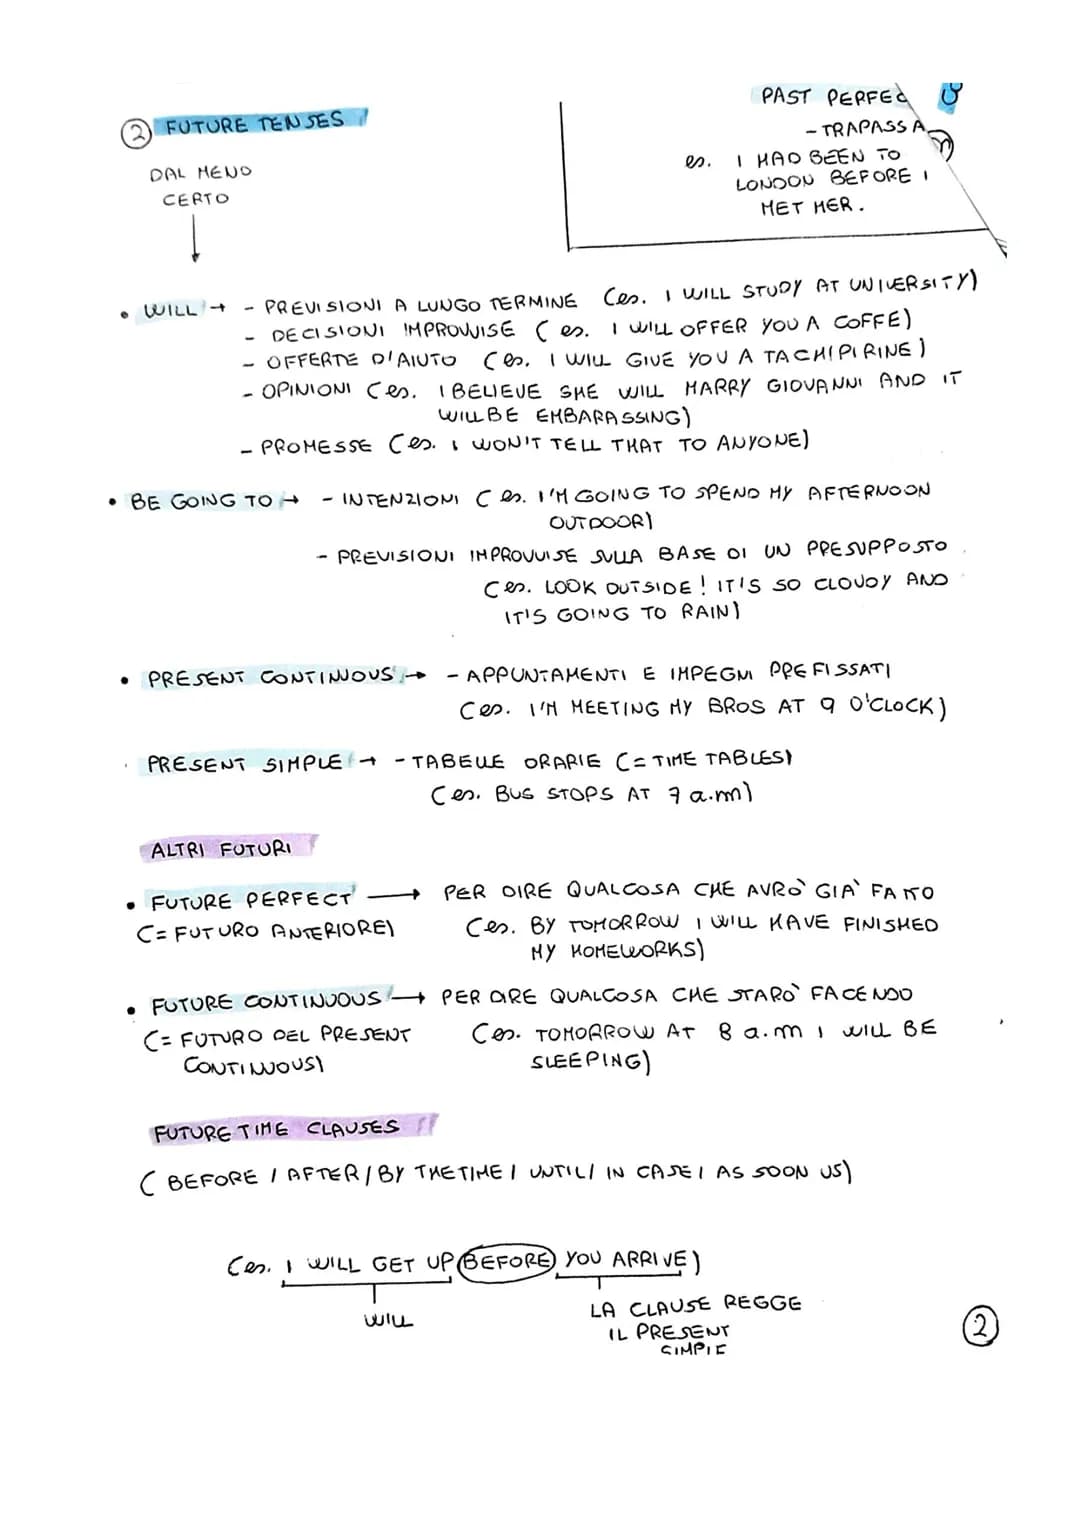 PAST PERFEC
- TRAPASSA
es. I HAD BEEN TO
LONDON BEFORE I
MET HER.
2 FUTURE TENSES
DAL MENO
CERTO
• WILL → - PREVISIONI A LUNGO TERMINE (es. I WILL STUDY AT UNIVERSITY)
- DECISIONI IMPROVVISE (es. I WILL OFFER YOU A COFFE)
- OFFERTE D'AIUTO (es. I WILL GIVE YOU A TACHIPIRINE)
- OPINIONI (es. I BELIEVE SHE WILL MARRY GIOVANNI AND IT
WILL BE EMBARASSING)
- PROMESSE (es. I WON'T TELL THAT TO ANYONE)
• BE GOING TO → - INTENZIONI (es. I'M GOING TO SPEND MY AFTERNOON
OUTDOOR)
- PREVISIONI IMPROVVISE SULLA BASE DI UN PRESUPPOSTO
(es. LOOK OUTSIDE! IT'S SO CLOUDY AND
IT'S GOING TO RAIN)
• PRESENT CONTINUOUS → - APPUNTAMENTI E IMPEGNI PREFISSATI
(es. I'M MEETING MY BROS AT 9 O'CLOCK)
• PRESENT SIMPLE → - TABELLE ORARIE (= TIME TABLES)
(es. BUS STOPS AT 7 a.m)
ALTRI FUTURI
• FUTURE PERFECT → PER DIRE QUALCOSA CHE AVRÒ GIÀ FATTO
(= FUTURO ANTERIORE) (es. BY TOMORROW I WILL HAVE FINISHED
MY HOMEWORKS)
• FUTURE CONTINUOUS → PER DIRE QUALCOSA CHE STARÒ FACENDO
(= FUTURO DEL PRESENT (es. TOMORROW AT 8 a.m I WILL BE
CONTINUOUS) SLEEPING)
FUTURE TIME CLAUSES
(BEFORE / AFTER / BY THE TIME / UNTIL / IN CASE / AS SOON US)
(es. I WILL GET UP BEFORE YOU ARRIVE)
WILL
LA CLAUSE REGGE
IL PRESENT
SIMPLE
2